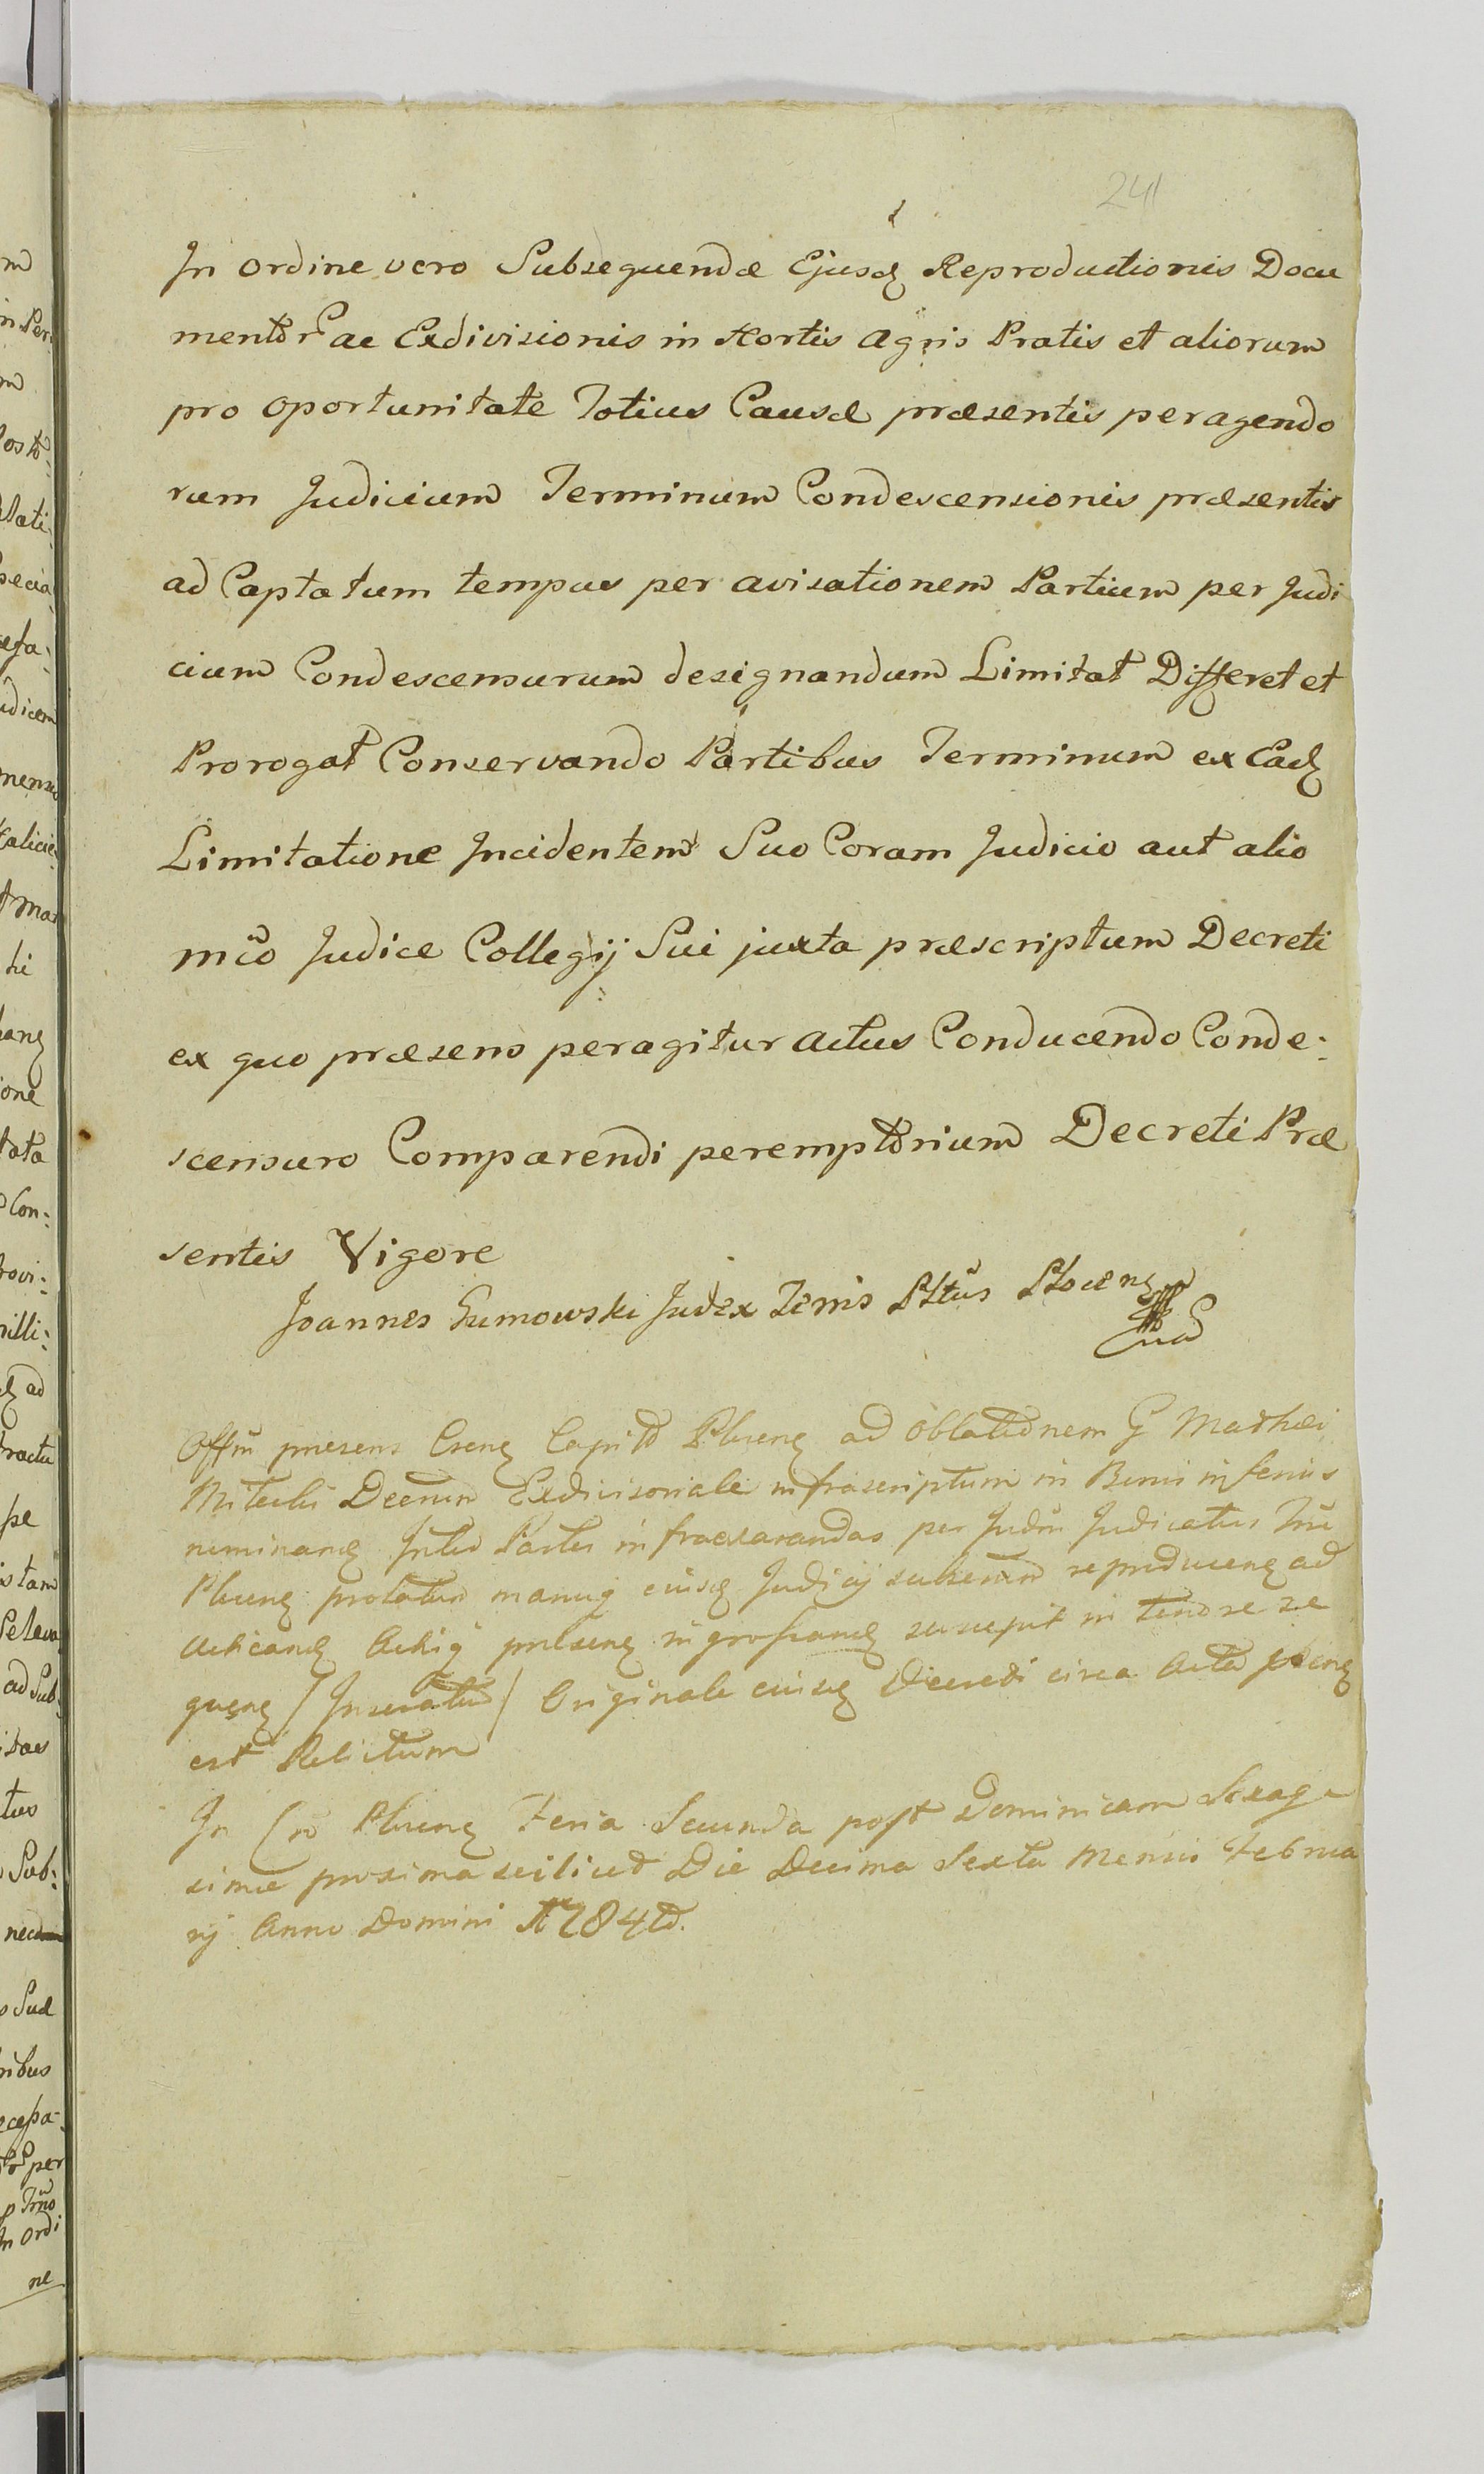 241
In ordine vero Subsequendæ Ejusq Reproductionis Docu
mentor ac Exdivisionis in Hortis agris Pratis et aliorum
pro oportunitate Totius Causæ præsentis peragendo
rum Judicium Terminum Condescensionis præsentis
ad Captatum tempus per avisationem Partium per Judi
cium Condescensurum designandum Limitat Differet et
Prorogat Conservando Partibus Terminum ex Eadq
Limitatione Incidentem Suo Coram Judicio aut alio
mco Judice Collegij Sui juxta præscriptum Decreti
ex quo præsens peragitur actus Conducendo Conde:
scensuro Comparendi peremptorium Decreti Præ
sentis Vigore
Joannes Gumowski Judex Trnis Pltus Ploceng
Offm præsens Capit ad oblationem G Mathæi
Decrum Exdivisoriale infrascriptum in Bonis inferius
nominang Inter Partes infraexarandas per Judm Judicatus
prolatum manuq eiusq Judicij subscrum reproduceng ad
acticandq præseng ingrossandq suscepit in tenore se
queng / Inseratur / Originale eiusq Decreti circa acta
est Relictum
In Feria Secunda post Dominicam Sexage
simæ proxima scilicet Die Decima Sexta Mensis Februa
rij Anno Domini 1784to.